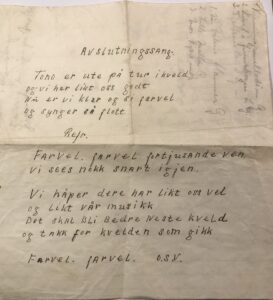 Avslutningssang.
Tono er ute på tur ikveld
og vi har likt oss godt
Nå er vi klar og si farvel
og synger så flott
Refr.
Farvel. farvel fortjusande ven
vi sees nokk snart igjen.
Vi håper dere har likt oss vel
og likt vår musikk
Det skal bli bedre neste kveld
og takk for kvelden som gikk
Farvel. farvel. o.s.v.